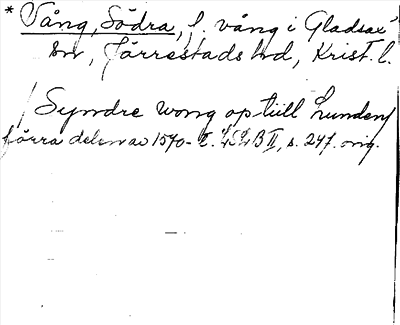 * Vång, Södra, f. vång i Gladsax
sn, Järrestads hd, Krist. l.
/Syndre wong op till Lunden/
förra delen av 1570-t. LSLB II, s. 247. orig.